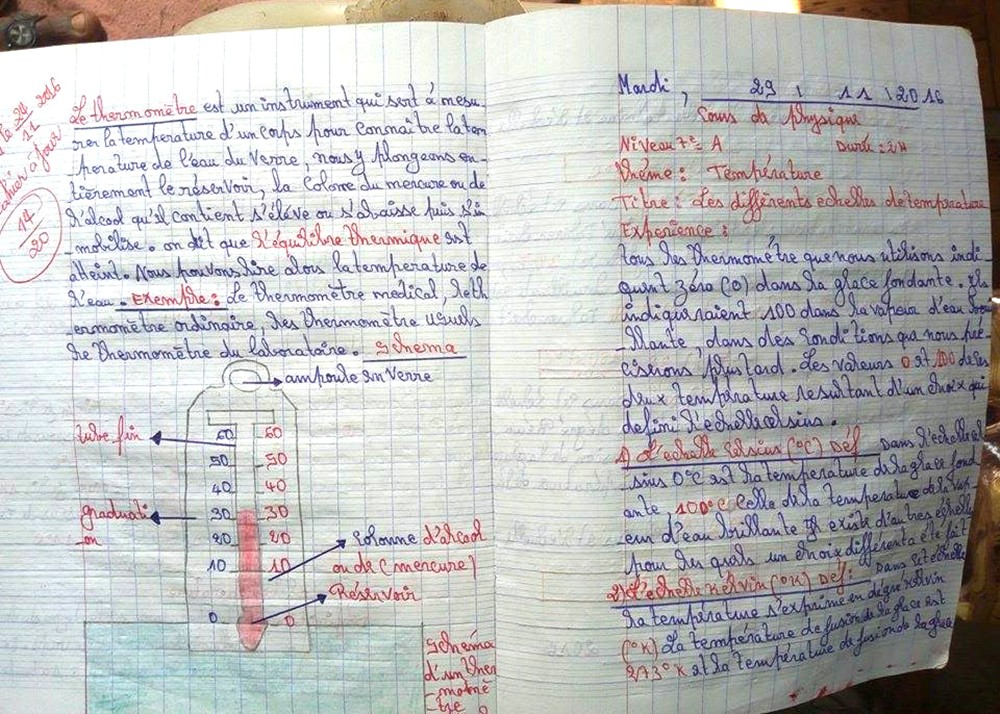 le 24
11
2016
cahier à jour
14
20
Le thermomètre est un instrument qui sert à mesu
rer la temperature d'un corps pour connaître la tem
perature de l'eau du verre, nous y plongeons en-
tièrement le réservoir, la colone du mercure ou de
l'alcool qu'il contient s'élève ou s'abaisse puis s'in
mobilise. on dit que l'équilibre thermique est
atteint. Nous pouvons lire alors la temperature de
l'eau. Exemple: Le thermomètre medical, le th
ermomètre ordinaire, les thermomètre usuels
le thermomètre du laboratoire. Schema
ampoule en verre
tube fin
60 60
50 50
40 40
graduati
on
30 30
20 20
10 10
0 0
colonne d'alcool
ou de (mercure)
Réservoir
Schéma
d'un ther
momè
tre
Mardi, 29 11 2016
Cours de physique
Niveau 7e A Durée: 2H
thème: Température
Titre: Les différents echelles de temperature
Experience:
tous les thermomètre que nous utilisons indi
quent zéro (0) dans la glace fondante. Ils
indiqueraient 100 dans la vapeur d'eau boui
llante, dans des conditions que nous pré
ciserons plus tard. Les valeurs 0 et 100 de ces
deux température resultant d'un choix qui
defini l'echelle celsius.
1) L'echelle Celsius (°C) Déf Dans l'echelle cel
sius 0°C est la temperature de la glace fond
ante, 100°C celle de la temperature de la vap
eur d'eau bouillante Il existe d'autres échelles
pour les quels un choix différent a été fait
2) L'echelle Kelvin (°K) Déf: Dans cet échelle
la température s'exprime en dégré kelvin
(°K) La température de fusion de la glace est
273°K et la température de fusion de la glace